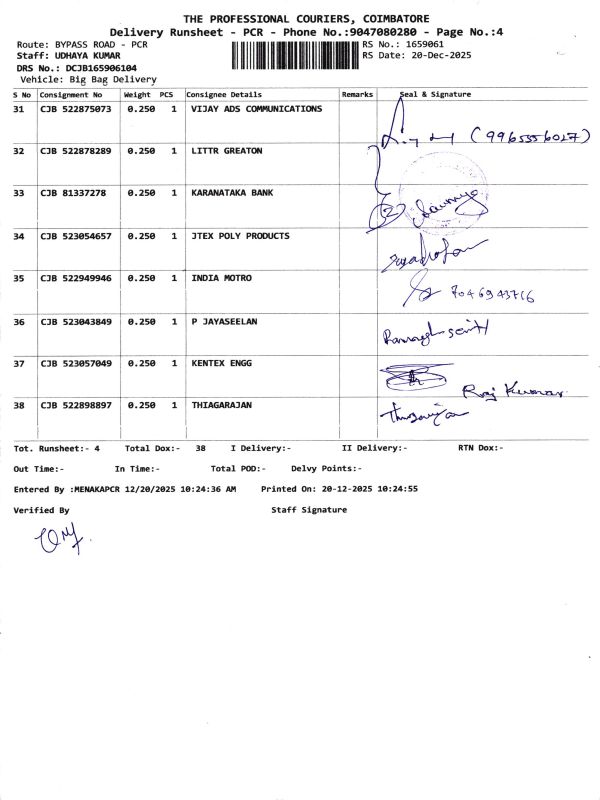 THE PROFESSIONAL COURIERS, COIMBATORE
Delivery Runsheet - PCR - Phone No.:9047080280 - Page No.:4
Route: BYPASS ROAD - PCR RS No.: 1659061
Staff: UDHAYA KUMAR RS Date: 20-Dec-2025
DRS No.: DCJB165906104
Vehicle: Big Bag Delivery
S No Consignment No Weight PCS Consignee Details Remarks Seal & Signature
31 CJB 522875073 0.250 1 VIJAY ADS COMMUNICATIONS
(9965556027)
32 CJB 522878289 0.250 1 LITTR GREATON
33 CJB 81337278 0.250 1 KARANATAKA BANK
2
34 CJB 523054657 0.250 1 JTEX POLY PRODUCTS
35 CJB 522949946 0.250 1 INDIA MOTRO
7046943716
36 CJB 523043849 0.250 1 P JAYASEELAN
37 CJB 523057049 0.250 1 KENTEX ENGG
Raj Kumar
38 CJB 522898897 0.250 1 THIAGARAJAN
Tot. Runsheet:- 4 Total Dox:- 38 I Delivery:- II Delivery:- RTN Dox:-
Out Time:- In Time:- Total POD:- Delvy Points:-
Entered By :MENAKAPCR 12/20/2025 10:24:36 AM Printed On: 20-12-2025 10:24:55
Verified By Staff Signature